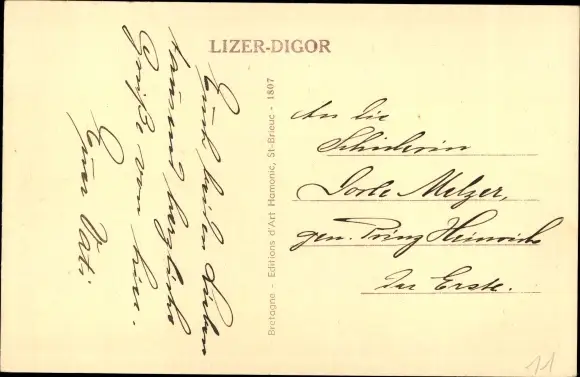 LIZER-DIGOR
Euch beiden Lieben
tausend herzliche
Grüße von hier.
Euer Vati.
Bretagne - Editions d'Art Hamonic, St-Brieuc - 1807
An die
Schülerin
Dorle Melzer,
gen. Prinz Heinrich
Der Erste.
11